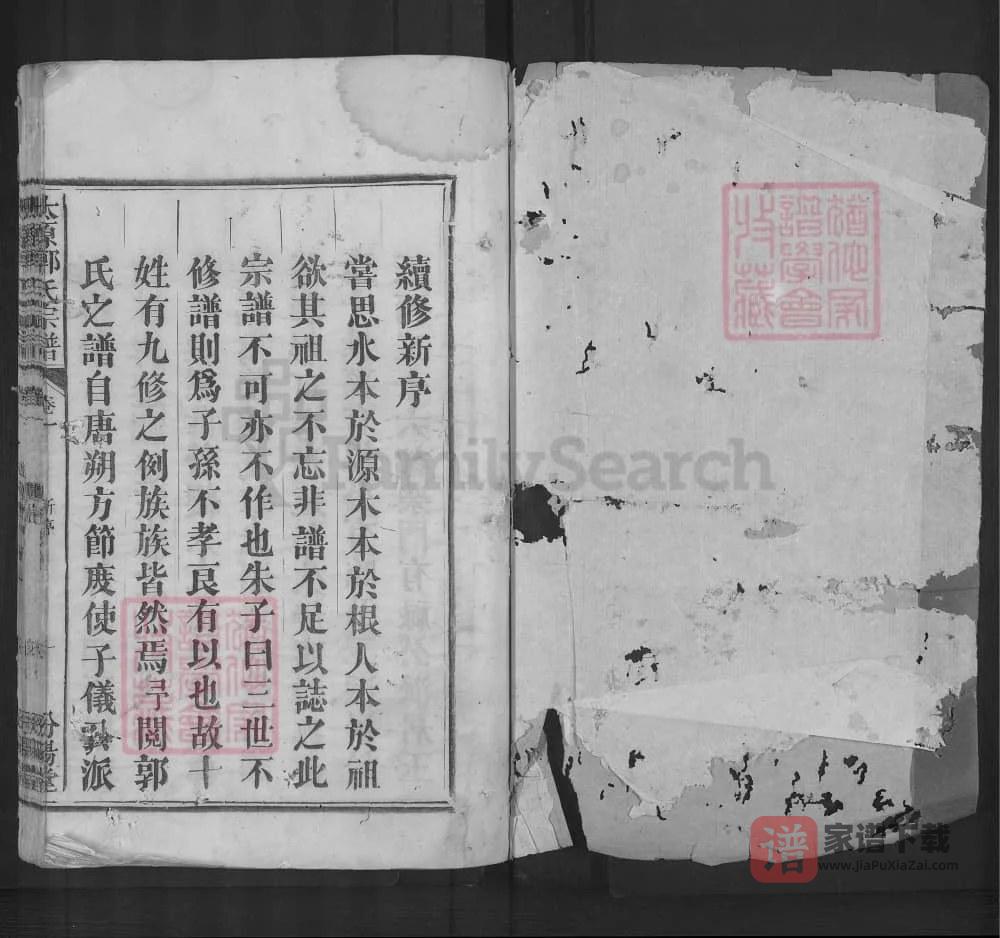 續修新序
嘗思水本於源木本於根人本於祖
欲其祖之不忘非譜不足以誌之此
宗譜不可亦不作也朱子曰三世不
修譜則爲子孫不孝良有以也故十
姓有九修之例族族皆然焉尋閱郭
氏之譜自唐朔方節度使子儀公派
太原郭氏宗譜
卷一
新序
一
汾陽堂
猶他家
譜學會
收藏
FamilySearch
谱
家谱下载
www.JiaPuXiaZai.com